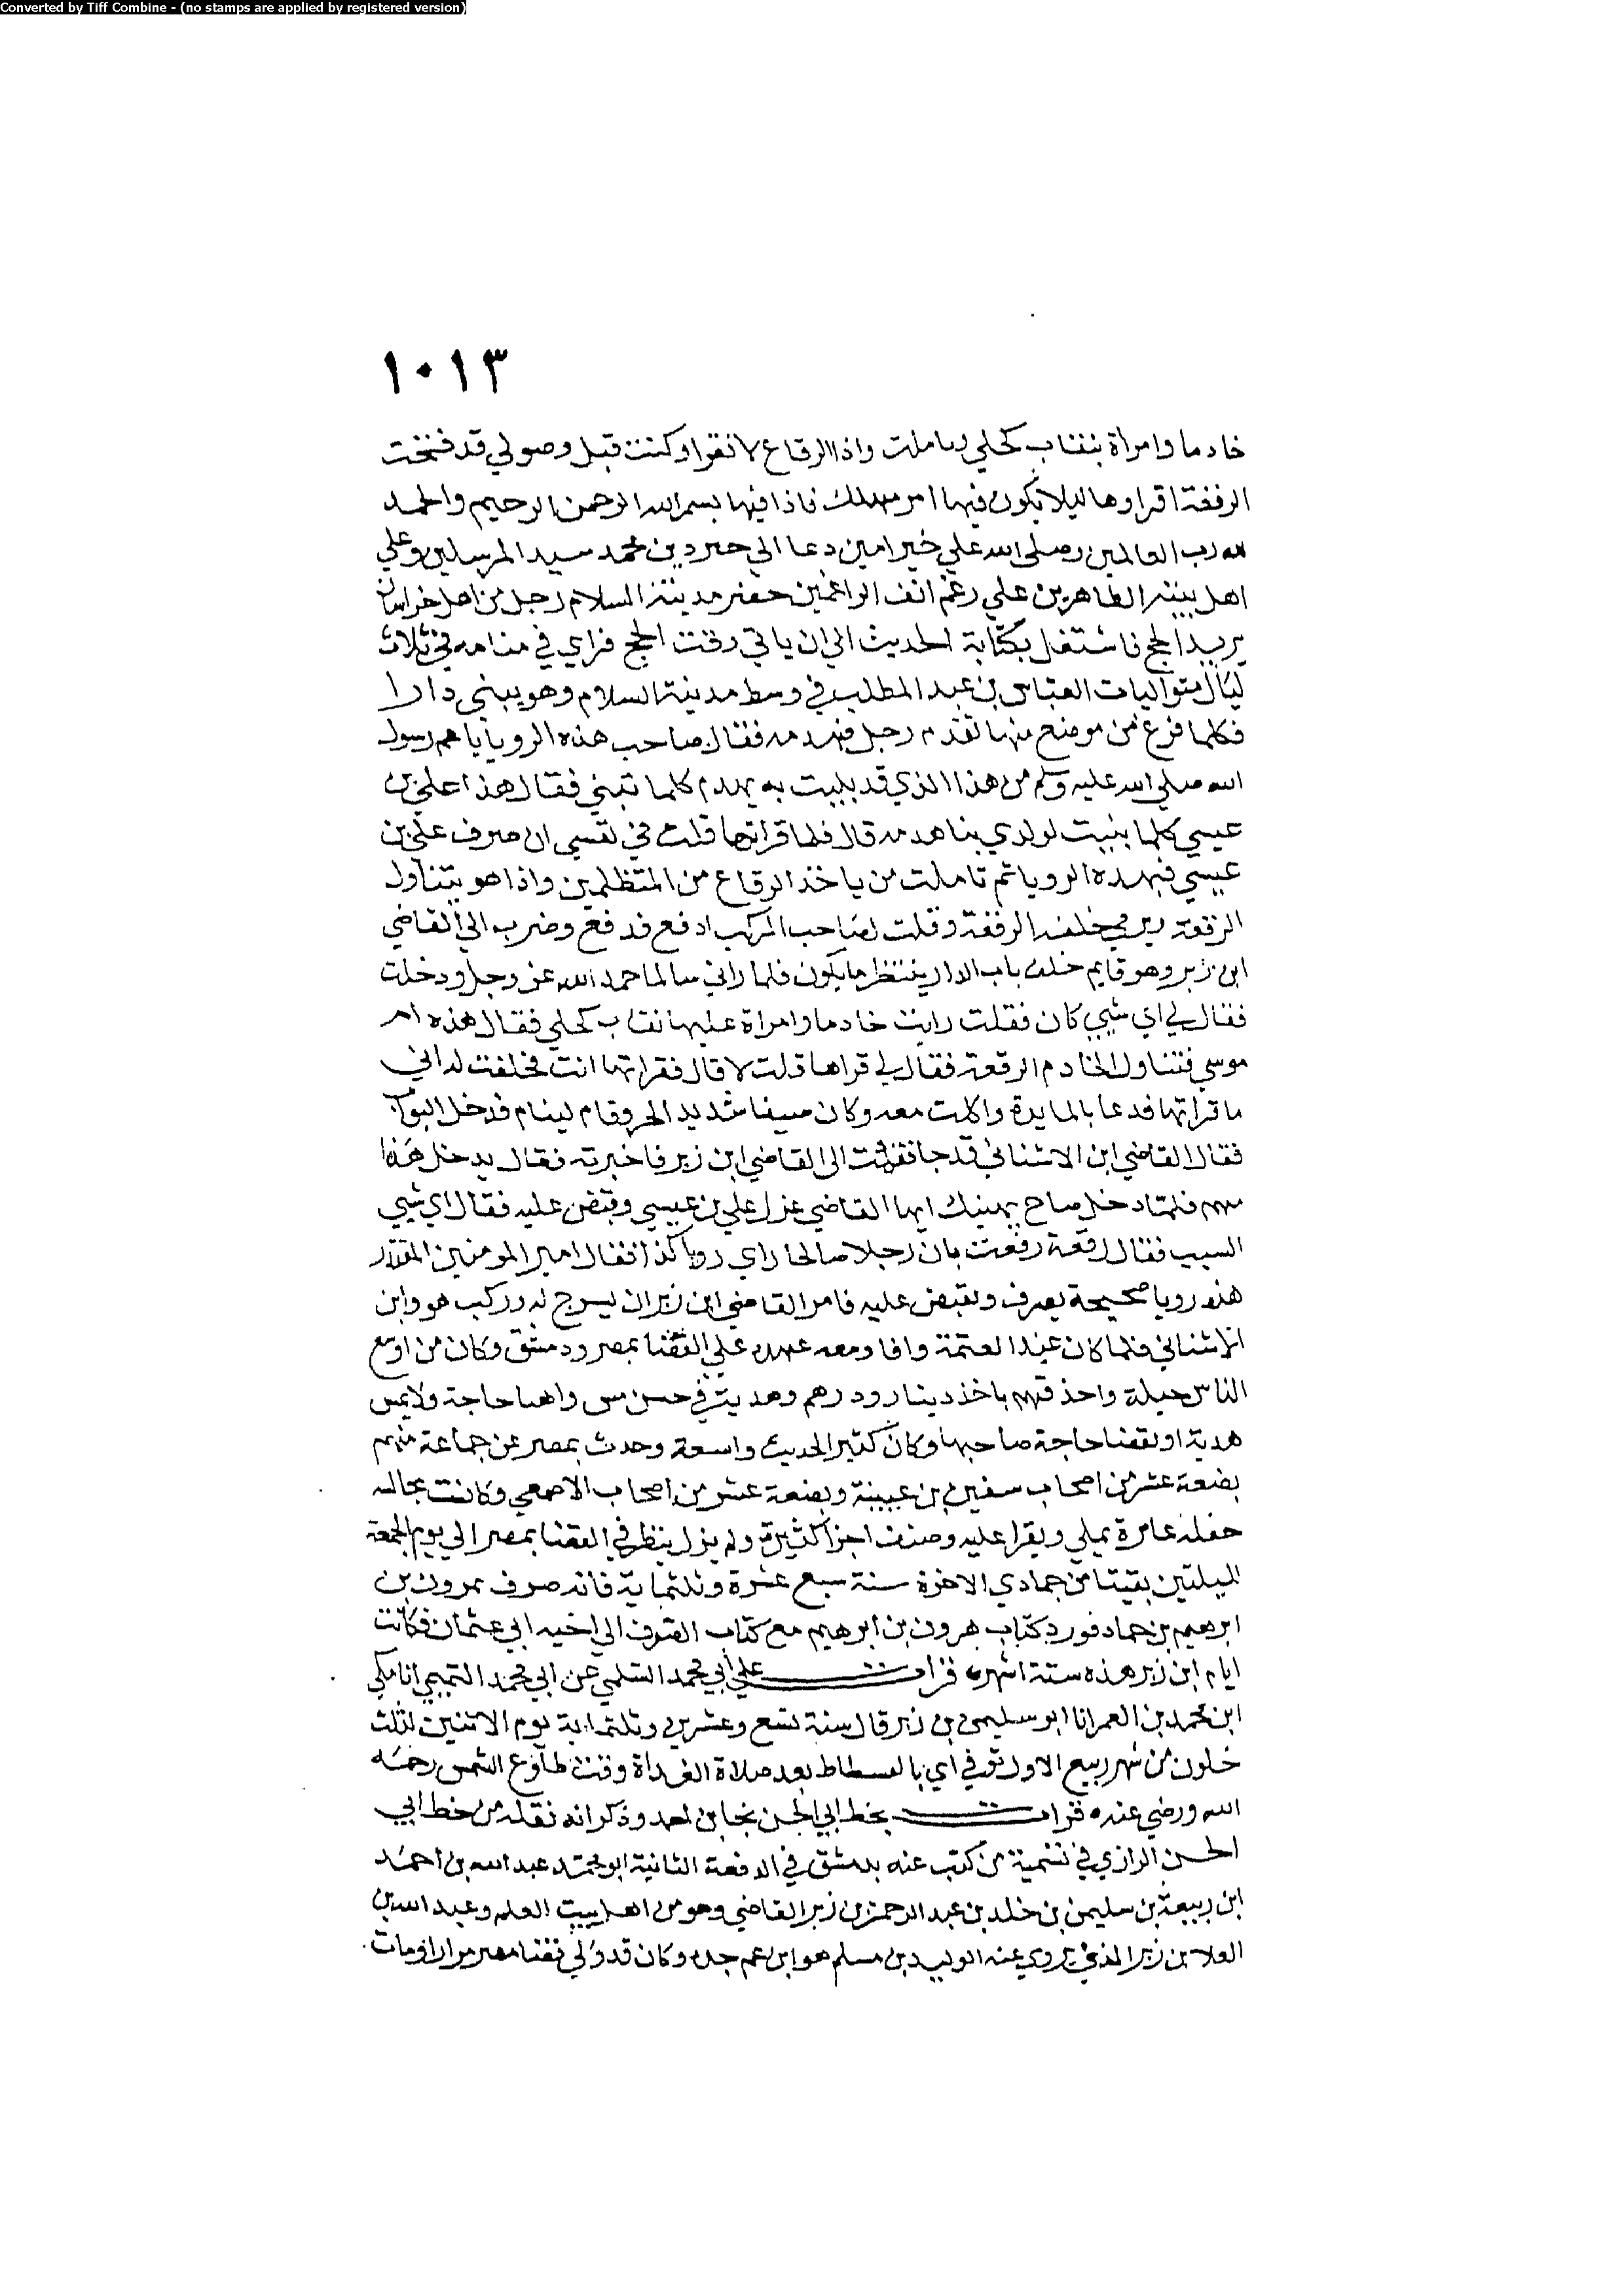 Converted by Tiff Combine - (no stamps are applied by registered version)
١٠١٣
خادما وامراة بنقاب كحلي وتاملت واذا الرقاع لا تقرا وكنت قبل وصولي قد فتحت
الرقعة اقراوها ليلا يكون فيها امر مهلك فاذا فيها بسم الله الرحمن الرحيم والحمد
لله رب العالمين وصلى الله علي خير امين دعا الي خير دين محمد سيد المرسلين وعلي
اهل بيته الطاهرين علي رغم انف الراغمين حضر مدينة السلام رجل من اهل خراسان
يريد الحج فاشتغل بكتابة الحديث الي ان ياتي وقت الحج فراي في منامه في ثلاث
ليال متواليات العباس بن عبد المطلب في وسط مدينة السلام وهو يبني دارا
فكلما فرغ من موضع منها تقدم رجل فهدمه فقال صاحب هذه الرويا يا عم رسول
الله صلي الله عليه وسلم من هذا الذي قد بليت به يهدم كلما تبني فقال هذا علي بن
عيسي كلما بنيت لولدي بنا هدمه قال فلما قراتها قلت في نفسي ان صرف علي بن
عيسي فبهذه الرويا ثم تاملت من ياخذ الرقاع من المتظلمين واذا هو يتناول
الرقعة ويرمي خلفه الرقعة وقلت لصاحب المركب ادفع فدفع وضرب الي القاضي
ابن زبر وهو قايم خلف باب الدار ينتظر ما يكون فلما راني سالما حمد الله عز وجل ودخلت
فقال لي اي شيي كان فقلت رايت خادما وامراة عليها نقاب كحلي فقال هذه ام
موسي فتناول الخادم الرقعة فقال لي قراها قلت لا قال فقراتها انت فحلفت له اني
ما قراتها فدعا بالمايدة واكلت معه وكان صيفا شديد الحر وقام لينام فدخل البواب
فقال القاضي ابن الاشناني قد جا فقمت الى القاضي ابن زبر فاخبرته فقال يدخل هذا
مهم فلما دخل صاح يهنيك ايها القاضي عزل علي بن عيسي وقبض عليه فقال اي شيي
السبب فقال رقعة رفعت بان رجلا صالحا راي رويا كذا فقال امير المومنين المقتدر
هذه رويا صحيحة يصرف ويقبض عليه فامر القاضي ابن زبر ان يسرج له وركب هو وابن
الاشناني فلما كان عند العتمة وافا ومعه عهده علي القضا بمصر ودمشق وكان من اوسع
الناس حيلة واحذقهم باخذ دينار ودرهم وهدية في حسن مس واهنا حاجة ولا يمس
هدية او يقضا حاجة صاحبها وكان كثير الحديث واسعه وحدث بمصر عن جماعة منهم
بضعة عشر من اصحاب سفين بن عيينة وبضعة عشر من اصحاب الاصمعي وكانت مجالسه
حفلة عامرة يملي ويقرا عليه وصنف اجزا كثيرة ولم يزل ينظر في القضا بمصر الي يوم الجمعة
لليلتين بقيتا من جمادي الاخرة سنة سبع عشرة وثلثماية فانه صرف بهرون بن
ابرهيم بن حماد فورد كتاب هرون بن ابرهيم مع كتاب الصرف الي اخيه ابي عثمان فكانت
ايام ابن زبر هذه ستة اشهر قرات علي ابي محمد السلمي عن ابي محمد التميمي انا مكي
ابن محمد بن الغمر انا ابو سليمن بن زبر قال سنة تسع وعشرين وثلثماية يوم الاثنين لثلث
خلون من شهر ربيع الاول توفي ابي بالفسطاط بعد صلاة الغداة وقت طلوع الشمس رحمه
الله ورضي عنه قرات بخط ابي الحسن نجا بن احمد وذكر انه نقله من خط ابي
الحسن الرازي في تسمية من كتب عنه بدمشق في الدفعة الثانية ابو محمد عبد الله بن احمد
ابن ربيعة بن سليمن بن خلد بن عبد الرحمن بن زبر القاضي وهو من اهل بيت العلم وعبد الله بن
العلا بن زبر الذي يروي عنه الوليد بن مسلم هو ابن عم جده وكان قد ولي قضا مصر مرارا ومات